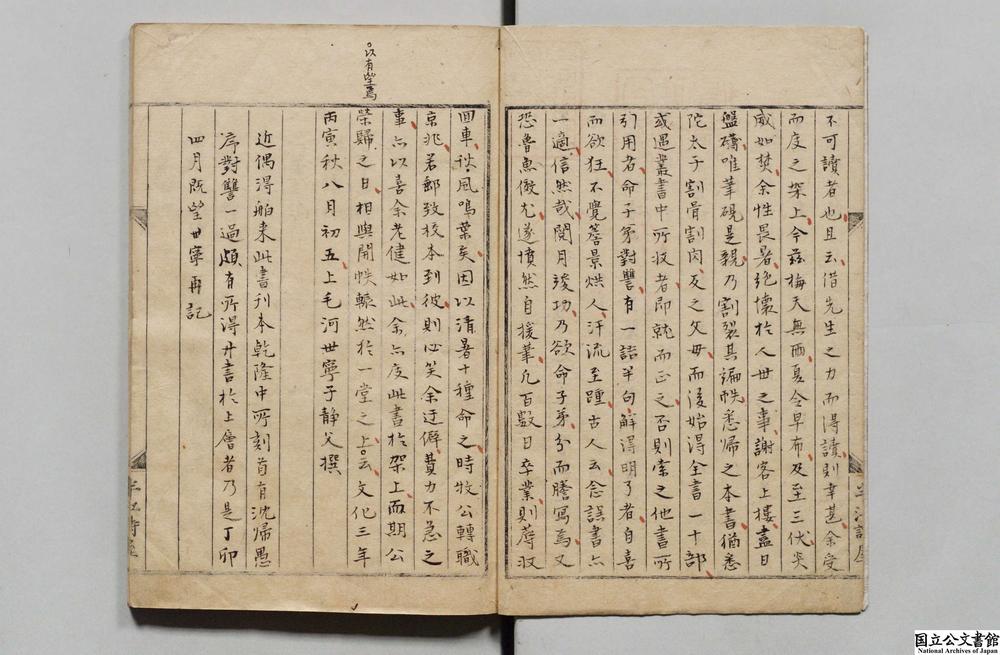 不可讀者也且云借先生之力而得讀則幸甚余受
而度之架上今茲梅天無雨夏令早布及至三伏炎
威如焚余性畏暑絕懷於人世之事謝客上樓盡日
盤礴唯筆硯是親乃割裂其編帙悉歸之本書猶悉
陀太子割骨割肉反之父母而後始得全書一十部
或遇叢書中所收者即就而正之否則索之他書所
引用者命子弟對讐有一語半句解得明了者自喜
而欲狂不覺簷景烘人汗流至踵古人云念誤書亦
一適信然哉閱月竣功乃欲命子弟分而謄寫焉又
恐魯魚倣尤遂憤然自援筆凡百數日卒業則蓐收
回車秋風鳴葉矣因以清暑十種命之時牧公轉職
京兆若郵致校本到彼則必笑余迂僻費力不急之
事亦以喜余老健如此余亦度此書於架上而期公
榮歸之日相與開帙轅然於一堂之上云文化三年
以有望焉
丙寅秋八月初五上毛河世寧子靜父撰
近偶得舶來此書刊本乾隆中所刻首有沈歸愚
序對讐一過頗有所得廾書於上層者乃是丁卯
四月既望世寧再記
国立公文書館
National Archives of Japan